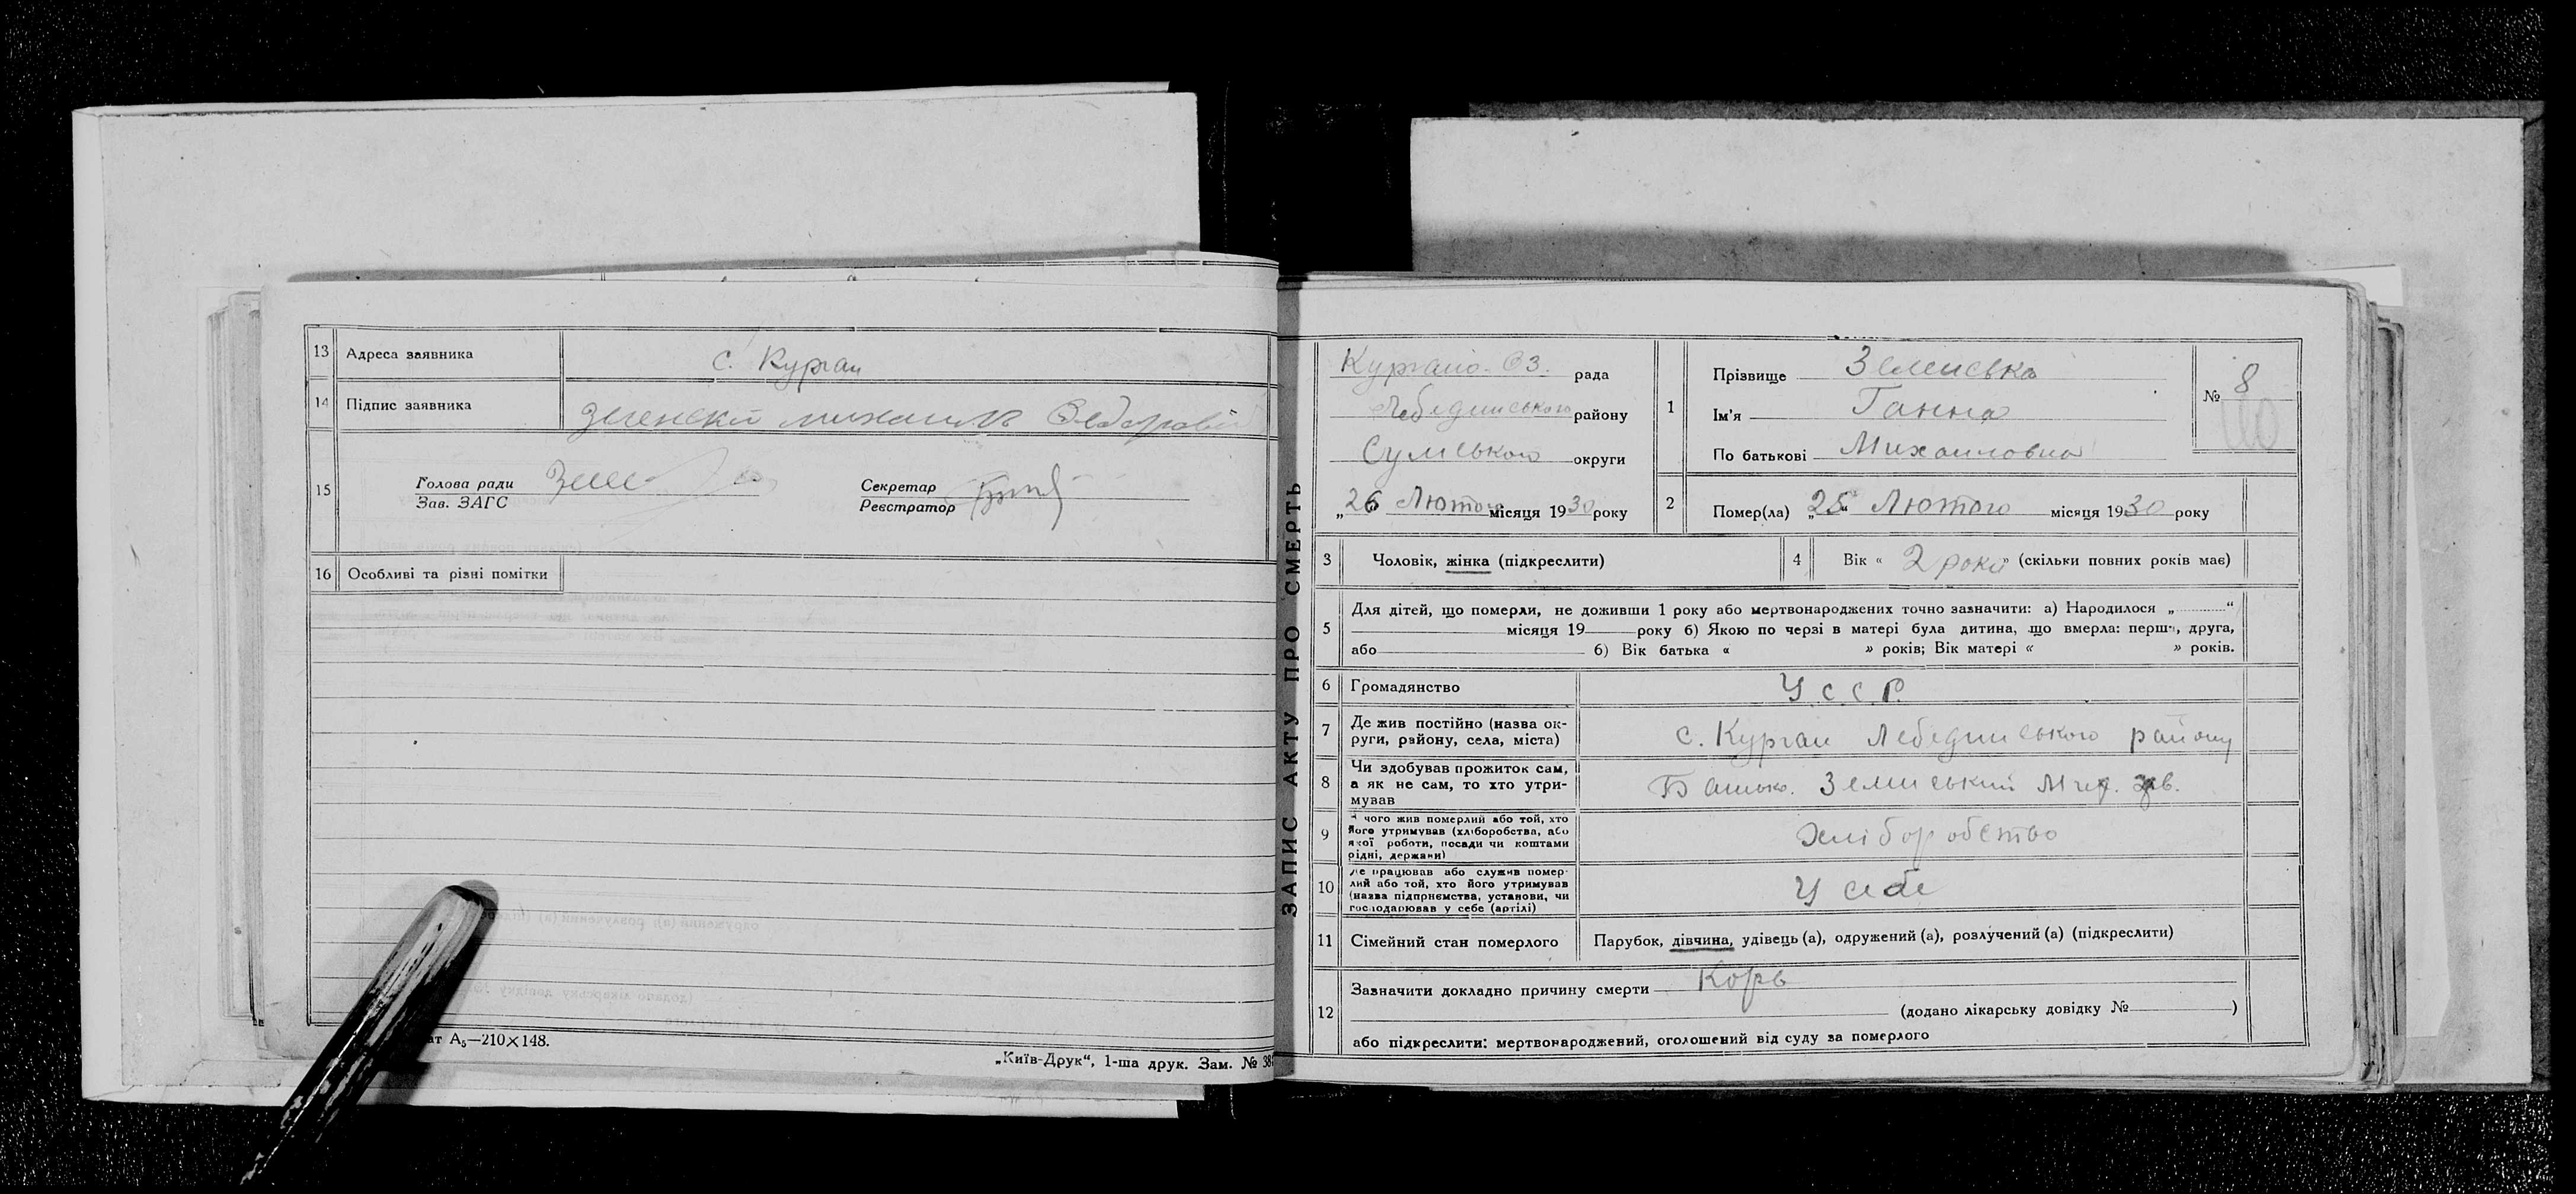 13 Адреса заявника с. Курган
14 Підпис заявника
15 Голова ради
Зав. ЗАГС
Секретар
Реєстратор
16 Особливі та різні помітки
ат А₅—210×148.
„Київ-Друк“, 1-ша друк. Зам. № 38
ЗАПИС АКТУ ПРО СМЕРТЬ
рада
Лебединського району
Сумського округи
„26 Лютого місяця 1930 року
1 Прізвище Земиська
Ім'я Ганна
По батькові Михаиловна
№ 8
2 Помер(ла) „25“ Лютого місяця 1930 року
3 Чоловік, жінка (підкреслити)
4 Вік « 2 роки » (скільки повних років має)
5 Для дітей, що померли, не доживши 1 року або мертвонароджених точно зазначити: а) Народилося „ “
місяця 19 року б) Якою по черзі в матері була дитина, що вмерла: перша, друга,
або б) Вік батька « » років; Вік матері « » років.
6 Громадянство У.С.С.Р.
7 Де жив постійно (назва ок-
руги, району, села, міста)
с. Курган Лебединського району
8 Чи здобував прожиток сам,
а як не сам, то хто утри-
мував
Батько. Земиський
9 З чого жив померлий або той, хто
його утримував (хліборобства, або
якої роботи, посади чи коштами
рідні, держави)
Хліборобство
10 Де працював або служив помер-
лий або той, хто його утримував
(назва підприємства, установи, чи
господарював у себе (артілі)
У себе
11 Сімейний стан померлого Парубок, дівчина, удівець (а), одружений (а), розлучений (а) (підкреслити)
12 Зазначити докладно причину смерти Корь
(додано лікарську довідку № )
або підкреслити: мертвонароджений, оголошений від суду за померлого